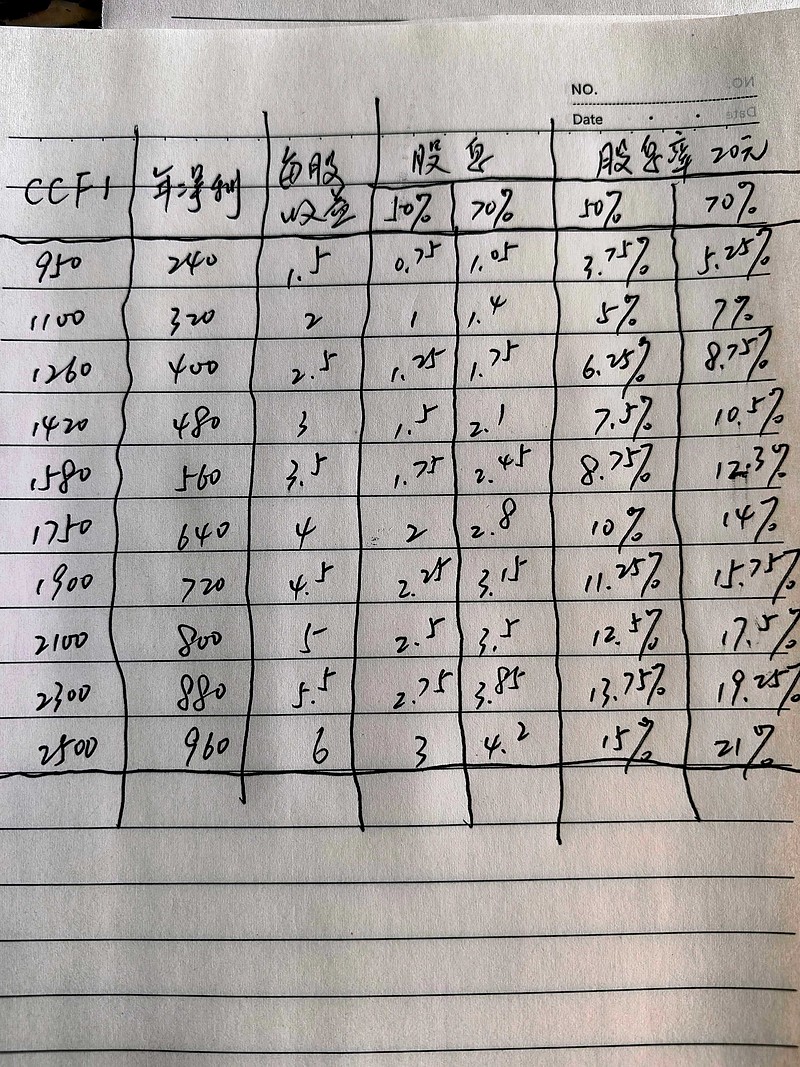 NO.
Date
CCFI 年净利 每股收益 股息 股息率 20元
50% 70% 50% 70%
950 240 1.5 0.75 1.05 3.75% 5.25%
1100 320 2 1 1.4 5% 7%
1260 400 2.5 1.25 1.75 6.25% 8.75%
1420 480 3 1.5 2.1 7.5% 10.5%
1580 560 3.5 1.75 2.45 8.75% 12.3%
1750 640 4 2 2.8 10% 14%
1900 720 4.5 2.25 3.15 11.25% 15.75%
2100 800 5 2.5 3.5 12.5% 17.5%
2300 880 5.5 2.75 3.85 13.75% 19.25%
2500 960 6 3 4.2 15% 21%